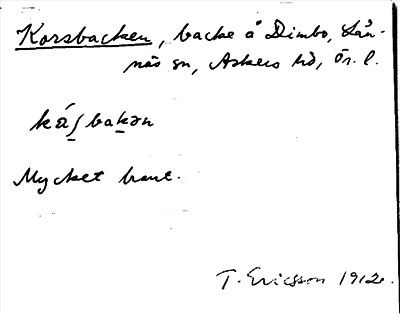 Korsbacken, backe å Dimbo, Lån-
näs sn, Askers hd, Ör. l.
Mycket brant.
T. Ericsson 1912.